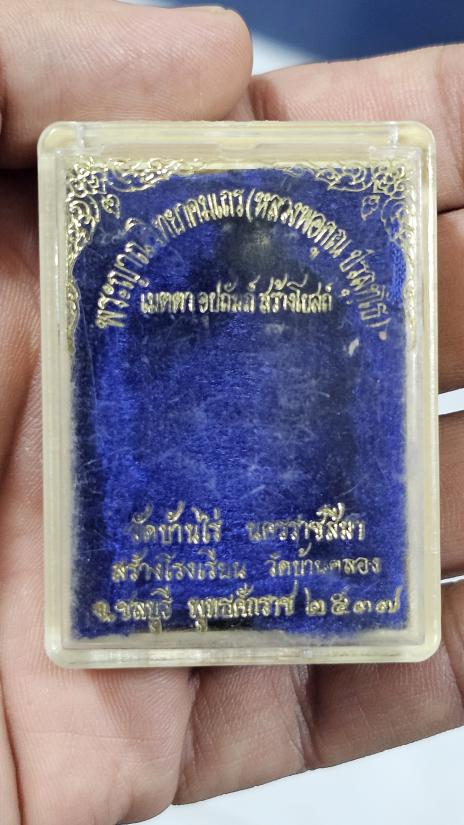 พระญาณวิทยาคมเถร (หลวงพ่อคูณ ปริสุทโธ)
เมตตา อุปถัมภ์ สร้างโบสถ์
วัดบ้านไร่ นครราชสีมา
สร้างโรงเรียน วัดบ้านคลอง
จ.ชลบุรี พุทธศักราช ๒๕๓๗